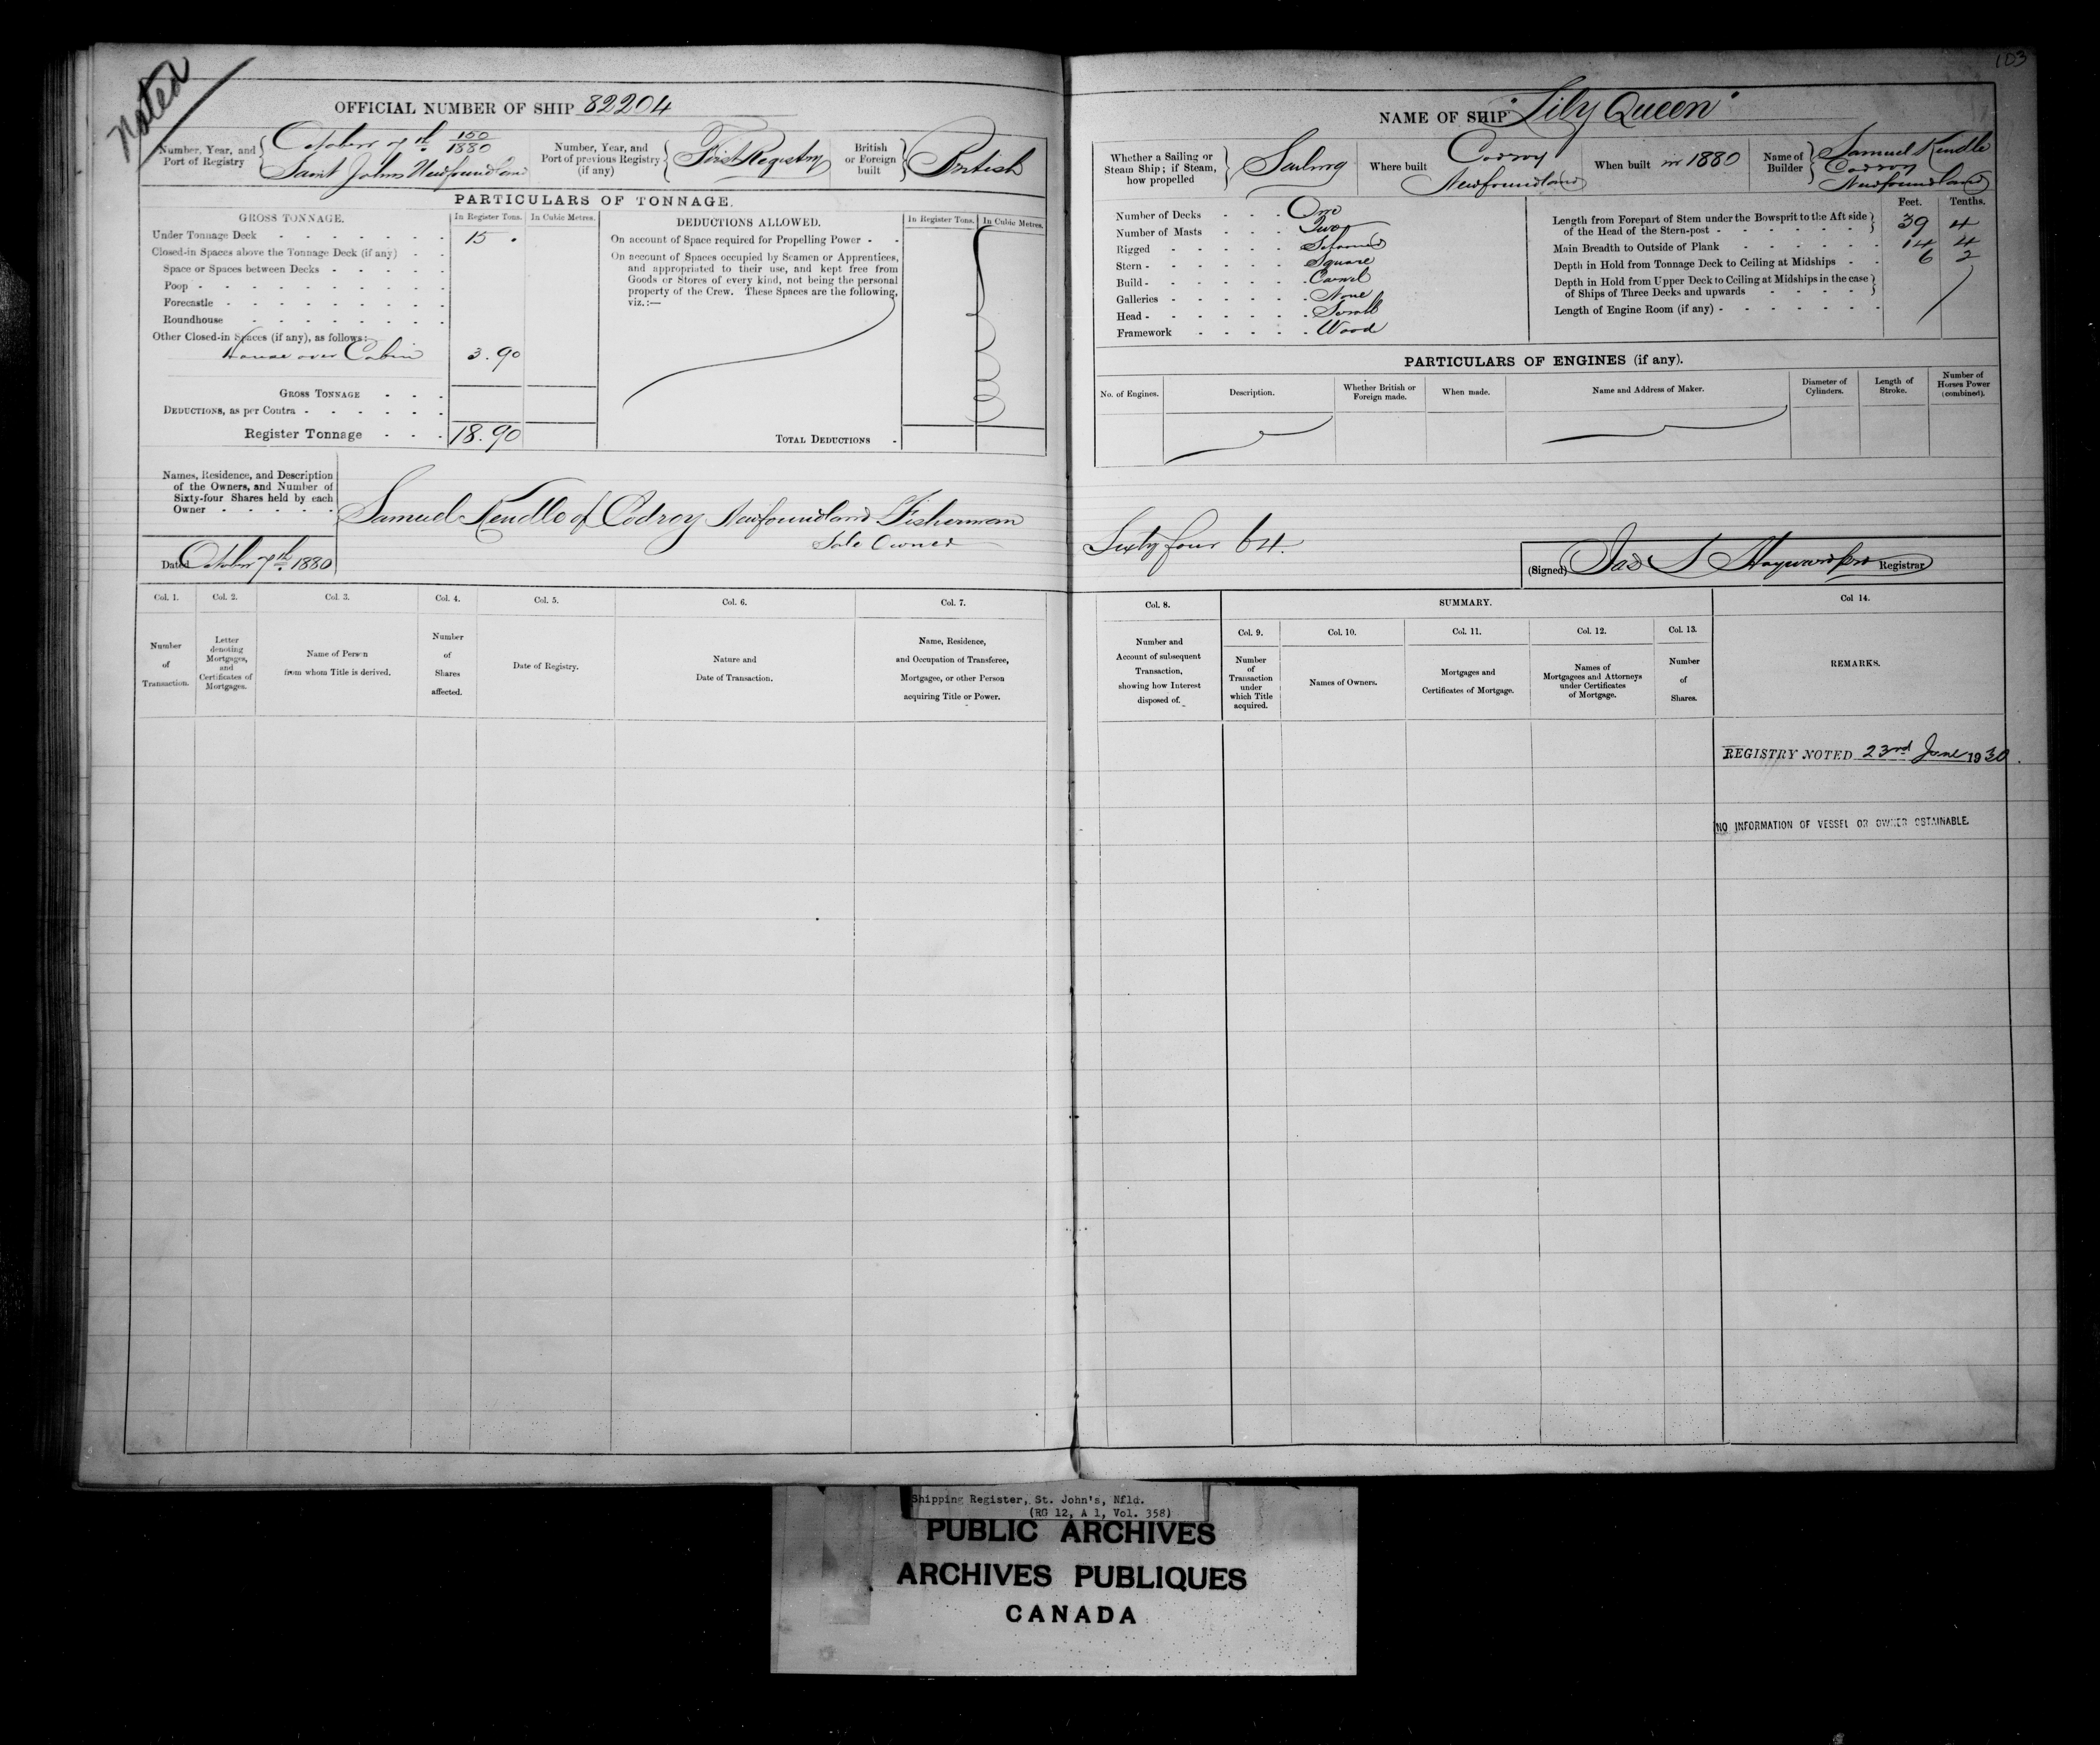 Noted
OFFICIAL NUMBER OF SHIP 82204
Number, Year, and Port of Registry
October 7th 150/1880
Saint Johns Newfoundland
Number, Year, and Port of previous Registry (if any)
First Registry
British or Foreign built
British
PARTICULARS OF TONNAGE.
GROSS TONNAGE.
In Register Tons.
In Cubic Metres.
Under Tonnage Deck 15 .
Closed-in Spaces above the Tonnage Deck (if any)
Space or Spaces between Decks
Poop
Forecastle
Roundhouse
Other Closed-in Spaces (if any), as follows:
House over Cabin 3.90
GROSS TONNAGE
DEDUCTIONS, as per Contra
Register Tonnage 18.90
DEDUCTIONS ALLOWED.
In Register Tons.
In Cubic Metres.
On account of Space required for Propelling Power
On account of Spaces occupied by Seamen or Apprentices,
and appropriated to their use, and kept free from
Goods or Stores of every kind, not being the personal
property of the Crew. These Spaces are the following,
viz.:—
TOTAL DEDUCTIONS
Names, Residence, and Description
of the Owners, and Number of
Sixty-four Shares held by each
Owner
Samuel Kendle of Codroy Newfoundland Fisherman
Sole Owner
Dated October 7th 1880
Col. 1.
Number
of
Transaction.
Col. 2.
Letter
denoting
Mortgages,
and
Certificates of
Mortgages.
Col. 3.
Name of Person
from whom Title is derived.
Col. 4.
Number
of
Shares
affected.
Col. 5.
Date of Registry.
Col. 6.
Nature and
Date of Transaction.
Col. 7.
Name, Residence,
and Occupation of Transferee,
Mortgagee, or other Person
acquiring Title or Power.
103
NAME OF SHIP "Lily Queen"
Whether a Sailing or
Steam Ship; if Steam,
how propelled
Sailing
Where built
Codroy
Newfoundland
When built in 1880
Name of Builder
Samuel Kendle
Codroy
Newfoundland
Number of Decks One
Number of Masts Two
Rigged Schooner
Stern Square
Build Carvel
Galleries None
Head Scroll
Framework Wood
Feet. Tenths.
Length from Forepart of Stem under the Bowsprit to the Aft side
of the Head of the Stern-post 39 4
Main Breadth to Outside of Plank 14 4
Depth in Hold from Tonnage Deck to Ceiling at Midships 6 2
Depth in Hold from Upper Deck to Ceiling at Midships in the case
of Ships of Three Decks and upwards
Length of Engine Room (if any)
PARTICULARS OF ENGINES (if any).
No. of Engines.
Description.
Whether British or
Foreign made.
When made.
Name and Address of Maker.
Diameter of
Cylinders.
Length of
Stroke.
Number of
Horses Power
(combined).
Sixty four 64.
(Signed) Jas S Hayward Registrar
Col. 8.
Number and
Account of subsequent
Transaction,
showing how Interest
disposed of.
SUMMARY.
Col. 9.
Number
of
Transaction
under
which Title
acquired.
Col. 10.
Names of Owners.
Col. 11.
Mortgages and
Certificates of Mortgage.
Col. 12.
Names of
Mortgagees and Attorneys
under Certificates
of Mortgage.
Col. 13.
Number
of
Shares.
Col 14.
REMARKS.
REGISTRY NOTED 23rd June 1930.
NO INFORMATION OF VESSEL OR OWNER OBTAINABLE.
Shipping Register, St. John's, Nfld.
(RG 12, A 1, Vol. 358)
PUBLIC ARCHIVES
ARCHIVES PUBLIQUES
CANADA